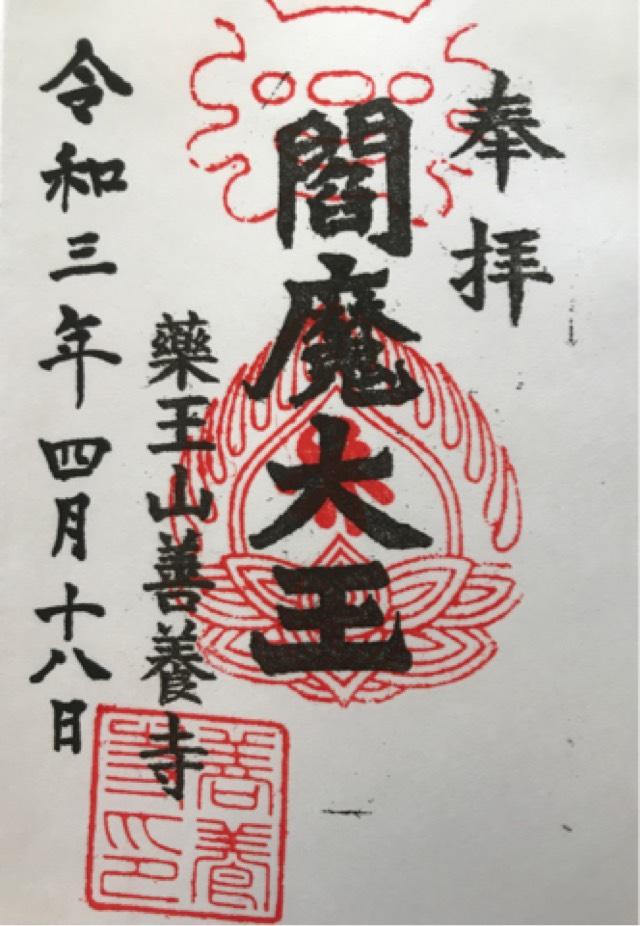 奉拝
閻魔大王
藥王山善養寺
令和三年四月十八日
善養
寺印